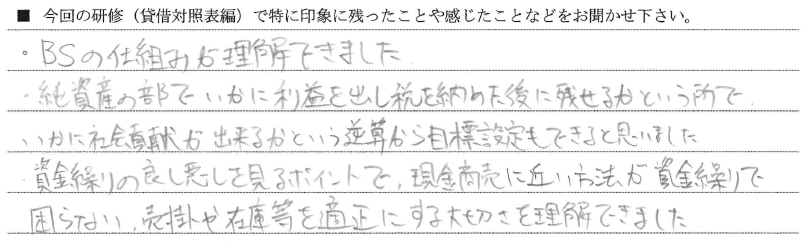 ■ 今回の研修（貸借対照表編）で特に印象に残ったことや感じたことなどをお聞かせ下さい。
・BSの仕組みが理解できました
・純資産の部で いかに利益を出し税を納めた後に残せるかという所で
いかに社会貢献が出来るかという逆算から目標設定もできると思いました
・資金繰りの良し悪しを見るポイントで、現金商売に近い方法が資金繰りで
困らない、売掛や在庫等を適正にする大切さを理解できました